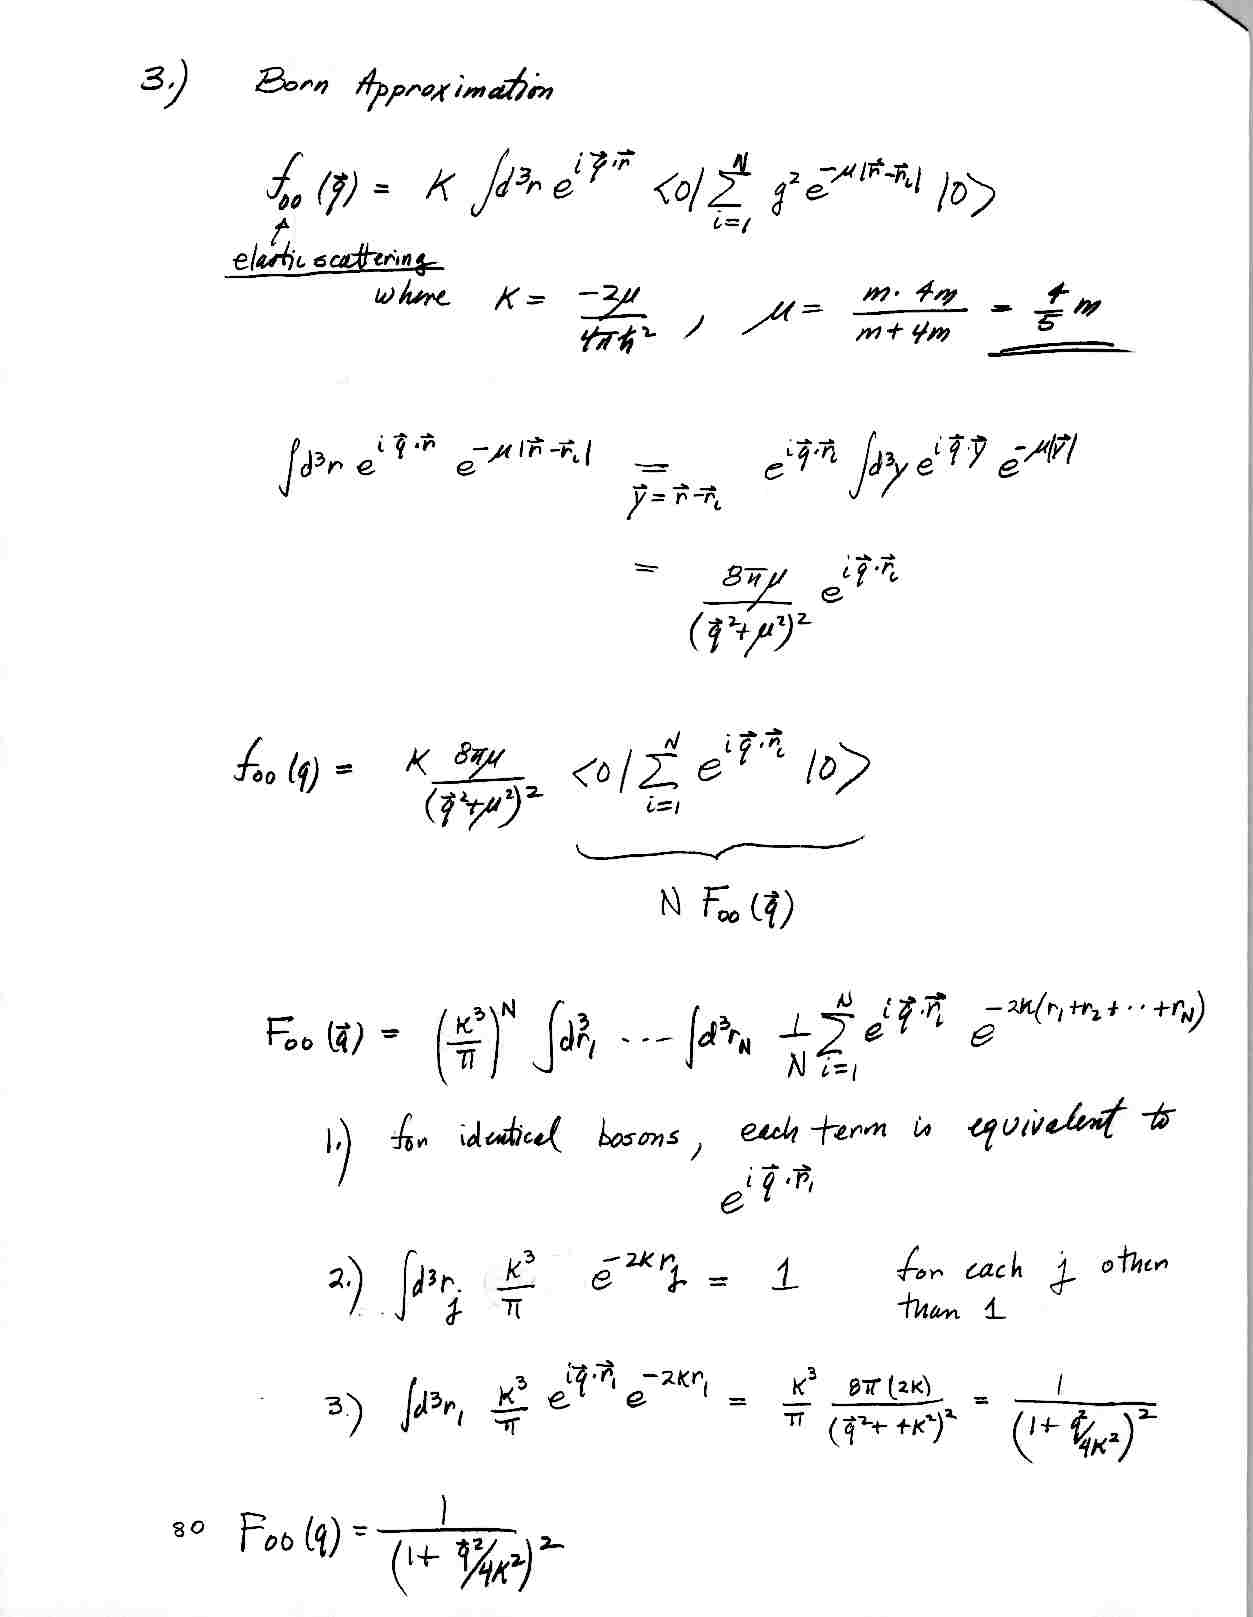 3.) Born Approximation
f₀₀(q⃗) = K ∫d³r e^{i q⃗·r⃗} <0| Σ_{i=1}^{N} g² e^{-μ|r⃗-r⃗ᵢ|} |0>
↑
elastic scattering
where K = -2μ/4πħ² , μ = m·4m/m+4m = 4/5 m
∫d³r e^{i q⃗·r⃗} e^{-μ|r⃗-r⃗ᵢ|} = e^{i q⃗·r⃗ᵢ} ∫d³y e^{i q⃗·y⃗} e^{-μ|y⃗|}
y⃗ = r⃗-r⃗ᵢ
= 8πμ/(q⃗²+μ²)² e^{i q⃗·r⃗ᵢ}
f₀₀(q) = K 8πμ/(q⃗²+μ²)² <0| Σ_{i=1}^{N} e^{i q⃗·r⃗ᵢ} |0>
N F₀₀(q⃗)
F₀₀(q⃗) = (K³/π)^N ∫d³r₁ ---- ∫d³r_N 1/N Σ_{i=1}^{N} e^{i q⃗·r⃗ᵢ} e^{-2K(r₁+r₂+··+r_N)}
1.) for identical bosons, each term is equivalent to
e^{i q⃗·r⃗₁}
2.) ∫d³r_j K³/π e^{-2K r_j} = 1 for each j other
than 1
3.) ∫d³r₁ K³/π e^{i q⃗·r⃗₁} e^{-2Kr₁} = K³/π 8π(2K)/(q⃗²+4K²)² = 1/(1+q²/4K²)²
so F₀₀(q) = 1/(1+q⃗²/4K²)²